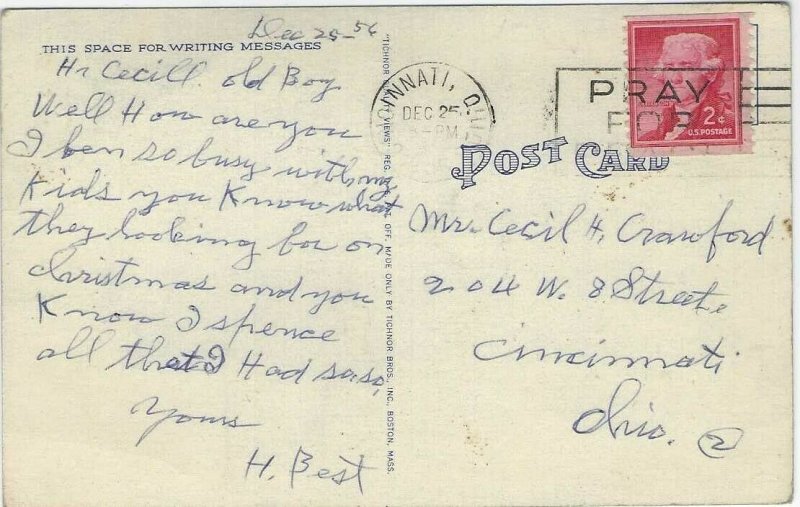 Dec 25-56
THIS SPACE FOR WRITING MESSAGES
Hr Cecill old Boy
Well How are you
I ben so busy with my
Kids you Know what
they looking for on
christmas and you
Know I spence
all that I Had so so,
Yours
H. Best
"TICHNOR QUALITY VIEWS" REG. U. S. PAT. OFF. MADE ONLY BY TICHNOR BROS., INC., BOSTON, MASS.
CINCINNATI, OHIO
DEC 25
PM
PRAY
FOR
2¢
U.S. POSTAGE
POST CARD
Mr. Cecil H. Crawford
204 W. 8 Street.
Cincinnati
Ohio. 2